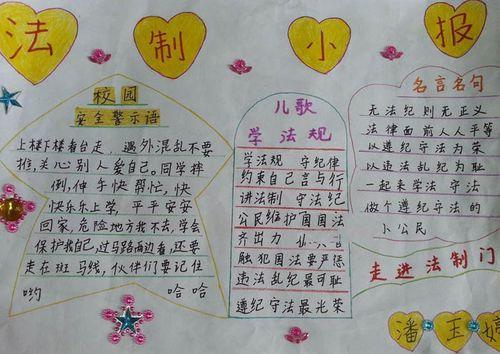 法制小报
校园
安全警示语
上楼下楼看台走，遇外混乱不要
推，关心别人爱自己。同学摔
倒，伸手快帮忙，快
快乐乐上学，平平安安
回家，危险地方我不去，学会
保护我自己，过马路两边看，还要
走在斑马线，伙伴们要记住
哟 哈哈
儿歌
学法规
学法规 守纪律
约束自己言与行
讲法制 守法纪
公民维护国国法
齐出力
触犯国法要严惩
违法乱纪最可耻
遵纪守法最光荣
名言名句
无法纪则无正义
法律面前人人平等
以遵纪守法为荣
以违法乱纪为耻
一起来学法守法
做个遵纪守法的
小公民
走进法制门
潘玉婷